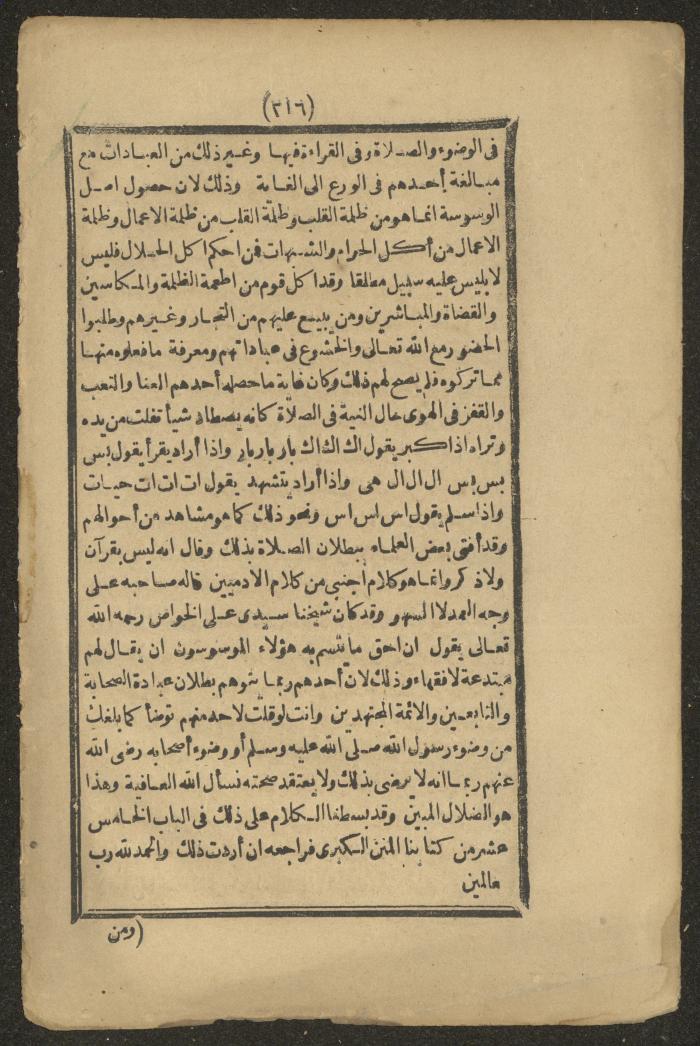 (٣١٦)
فى الوضوء والصلاة وفى القراءة فيها وغير ذلك من العبادات مع
مبالغة أحدهم فى الورع الى الغاية وذلك لان حصول اصل
الوسوسة انماهو من ظلمة القلب وظلمة القلب من ظلمة الاعمال وظلمة
الاعمال من أكل الحرام والشبهات فمن احكم اكل الحلال فليس
لابليس عليه سبيل مطلقا وقد اكل قوم من اطعمة الظلمة والمكاسين
والقضاة والمباشرين ومن يبيع عليهم من التجار وغيرهم وطلبوا
الحضور مع الله تعالى والخشوع فى عباداتهم ومعرفة ما فعلوه منها
مما تركوه فلم يصح لهم ذلك وكان غاية ما حصله أحدهم العنا والتعب
والقفز فى الهوى حال النية فى الصلاة كانه يصطاد شيأ تفلت من يده
وتراه اذا كبر يقول اك اك اك بار بار بار واذا أراد يقرأ يقول بس
بس بس ال ال ال هى واذا أراد يتشهد يقول ات ات ات حيات
واذا سلم يقول اس اس اس ونحو ذلك كما هو مشاهد من أحوالهم
وقد أفتى بعض العلماء ببطلان الصلاة بذلك وقال انه ليس بقرآن
ولا ذكر وانما هو كلام أجنبى من كلام الآدميين قاله صاحبه على
وجه العمد لا السهو وقد كان شيخنا سيدى على الخواص رحمه الله
تعالى يقول ان احق ما تسم به هؤلاء الموسوسون ان يقال لهم
مبتدعة لا فقهاء وذلك لان أحدهم ربما يتوهم بطلان عبادة الصحابة
والتابعين والائمة المجتهدين وانت لو قلت لاحد منهم توضأ كما بلغك
من وضوء رسول الله صلى الله عليه وسلم أو وضوء أصحابه رضى الله
عنهم ربما انه لا يرضى بذلك ولا يعتقد صحته نسأل الله العافية وهذا
هو الضلال المبين وقد بسطنا الكلام على ذلك فى الباب الخامس
عشر من كتابنا المنن الكبرى فراجعه ان أردت ذلك والحمد لله رب
عالمين
(ومن